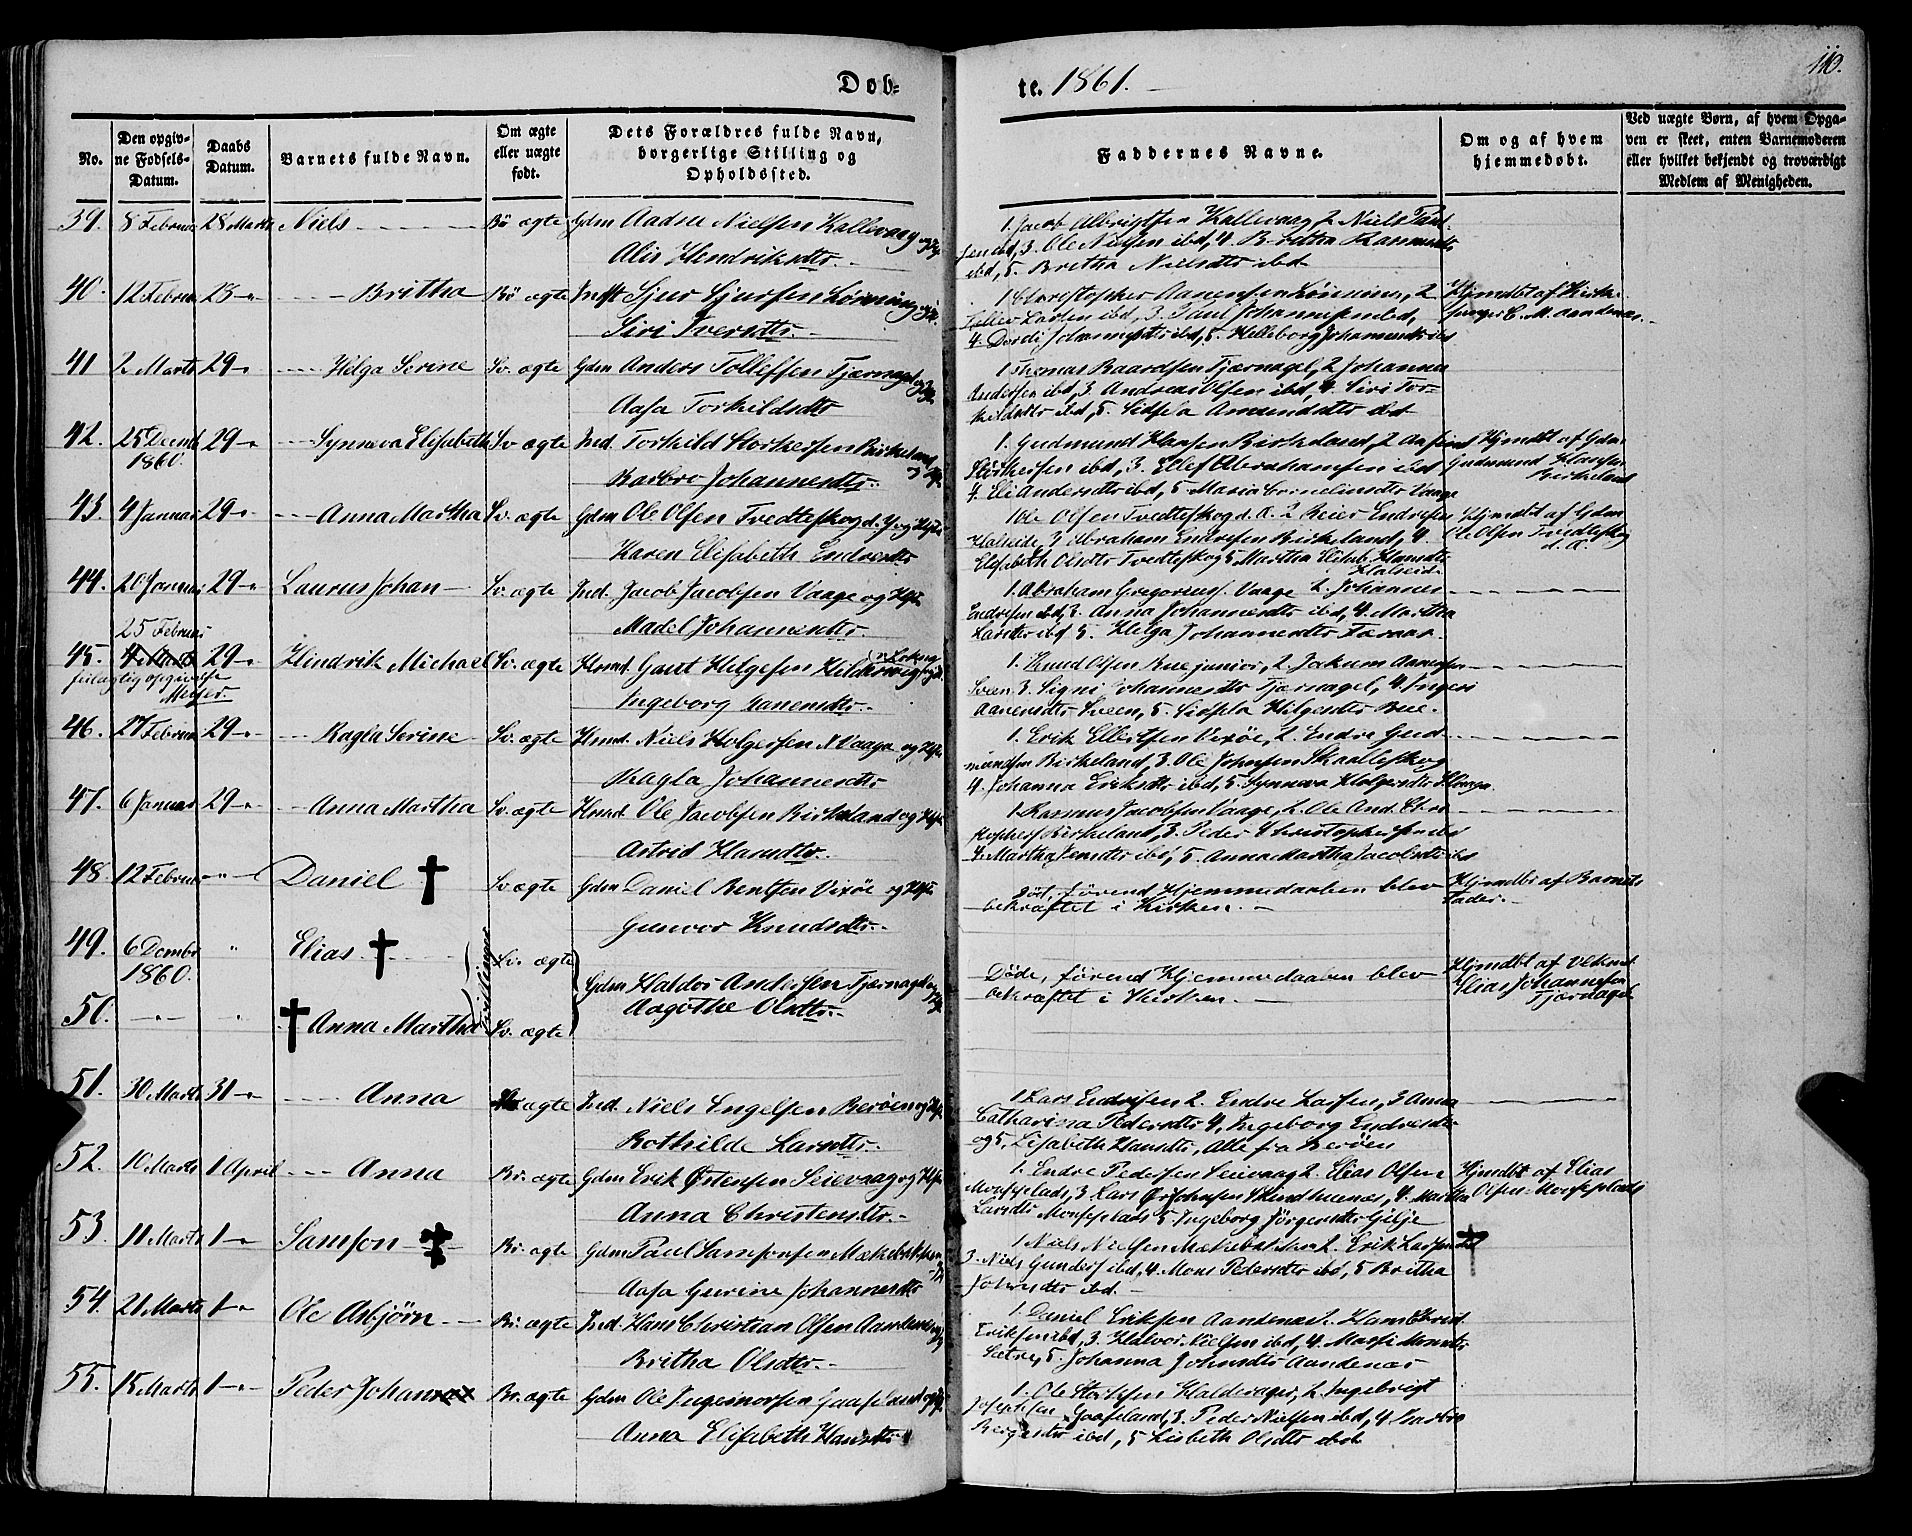 Dob= te. 1861.
110.
No.
Den opgiv-
ne Fødsels-
Datum.
Daabs
Datum.
Barnets fulde Navn.
Om ægte
eller uægte
født.
Dets Forældres fulde Navn,
borgerlige Stilling og
Opholdssted.
Faddernes Navne.
Om og af hvem
hjemmedøbt.
Ved uægte Børn, af hvem Opga-
ven er skeet, enten Barnemoderen
eller hvilket bekjendt og troværdigt
Medlem af Menigheden.
39. 8 Februar 28 Marts Niels Bø ægte Gdm Aadne Nielsen Kallevaag og Hst
Alis Hendriksdtr.
1. Jacob Albrigtsen Kallevaag, 2 Niels
ibd, 3. Ole Nielsen ibd, 4. Britha Rasmusdtr
ibd, 5. Britha Nielsdtr ibd
40. 12 Februar 28 -"- Britha Bø ægte Indst Sjur Sjursen Lønning og Hst.
Siri Iversdtr.
1 Christopher Aanensen Lønning, 2
Larsen ibd, 3. Paul Johannesen ibd,
4. Dordi Johannesdtr ibd, 5. Helleborg Johannesdtr ibd
Hjmdbt af Kirke-
sanger C. M. Aandenæs.
41 2 Marts 29 -"- Helga Serine Sv. ægte Gdm Anders Tollefsen Tjærnagel og Hst
Aasa Torkildsdtr
1 Thomas Baardsen Tjærnagel, 2 Johannes
Andersen ibd, 3. Andreas Olsen ibd, 4. Siri Tor-
kildsdtr ibd, 5. Amundsdtr ibd
42. 25 Decmb 29 -"- Synneva Elisabeth Sv ægte Ind. Torkild Størkersen Birkeland
1860. og Hst.
Barbro Johannesdtr.
1. Gudmund Hansen Birkeland, 2
Størkersen ibd, 3. Ellef Abrahamsen ibd
4. Eli Andersdtr ibd, 5 Maria Corneliusdtr Vaage
Hjmdbt af Gdm
Gudmund Hansen
Birkeland
43. 4 Januar 29 -"- Anna Martha Sv. ægte Gdm Ole Olsen Tvedteskog d. Y. og Hst
Karen Elisabeth Endresdtr
1 Ole Olsen Tvedteskog d. Æ. 2 Reier Endresen
Halseide, 3 Abraham Endresen Birkeland, 4.
Elisabeth Olsdtr Tvedteskog 5 Martha Elisab. Hansdtr
Halseide
Hjmdbt af Gdm
Ole Olsen Tvedteskog
d. Æ.
44. 20 Januar 29 -"- Laurus Johan Sv. ægte Ind. Jacob Jacobsen Vaage og Hst.
Madel Johannesdtr.
1. Abraham Gregorius. Vaage 2. Johannes
Endresen ibd, 3. Anna Johannesdtr ibd, 4. Martha
Larsdtr ibd 5. Helga Johannesdtr Færaas.
25 Februar
45. 4 Marts 29 -"- Hindrik Michael Sv. ægte Husmd. Gaut Helgesen
Meyer.
Ingeborg Aanensdtr.
1. Knud Olsen Bue junior, 2. Jakum Aanensen
Sveen 3. Signi Johannesdtr Tjærnagel, 4. Ingeri
Aanensdtr Sveen, 5. Helgesdtr Bue.
46. 27 Februar 29 -"- Ragla Serine Sv. ægte Husmd. Niels Holgersen N Vaage og Hst
Ragla Johannesdtr
1. Erik Ellertsen Vixøe, 2. Endre Gud-
mundsen Birkeland, 3. Ole Johnsen Skaalleskog
4. Johanna Eriksdtr ibd, 5. Synneva Holgersdtr Vaage.
47. 6 Januar 29 -"- Anna Martha Sv. ægte Husmd. Ole Jacobsen Birkeland og Hst
Astrid Hansdtr.
1. Rasmus Jacobsen Vaage, 2. Ole And. Chri
stophers Birkeland, 3. Peder Christophersen ibd
4. Martha Jensdtr ibd, 5. Anna Martha Jacobsdtr ibd
48. 12 Februar -"- Daniel ✝ Sv ægte Gdm Daniel Bentsen Vixøe og Hst
Gunvor Knudsdtr.
Død, førend Hjemmedaaben blev
bekræftet i Kirken.
Hjmdbt af Barnets
Fader.
49. 6 Decmbr " Elias ✝ Sv. ægte
1860.
Tvillinger
Gdm Haldor Andersen Tjærnagel og Hst
Aagothe Olsdtr.
Døde, førend Hjemmedaaben blev
bekræftet i Kirken.
Hjmdbt af
Elias Johannesen
Tjærnagel
50. -"- " ✝ Anna Martha Sv. ægte
51. 30 Marts 31 -"- Anna ægte Ind. Niels Engelsen Berøen og Hst
Bothilde Larsdtr.
1. Lars Endresen 2. Endre Larsen, 3 Anna
Catharina Pedersdtr 4, Ingeborg Endresdtr
og 5, Lisabeth Hansdtr, Alle fra Berøen
52. 10 Marts 1 April Anna Br. ægte Gdm Erik Østensen Seievaag og Hst
Anna Christensdtr.
1. Endre Pedersen Seievaag 2. Elias Olsen
Mosseplads, 3 Lars 4. Martha
Larsdtr Mosseplads 5. Ingeborg Jørgensdtr Gilje
Hjmdbt af Elias
Olsen Mosseplads
53. 11 Marts 1 -"- Samson ✝ Br. ægte Gdm Paul Samsonsen Mækebakken
Aasa Gurine Johannesdtr
1 Niels Nielsen Mækebakken 2. Erik Larsen ibd
3. Niels Gunders ibd, 4. Mons Petersdtr ibd, 5 Britha
Johnsdtr ibd.
✝
54. 21 Marts 1 -"- Ole Asbjørn Br. ægte Ind. Hans Christian Olsen Aandenæs og Hst
Britha Olsdtr.
1. Daniel Eriksen Aandenæs 2. Hans
Eriksen ibd, 3. Halvor Nielsen ibd, 4. Monsdtr
Sætre, 5. Johanna Johnsdtr Aandenæs
55. 15 Marts 1 -"- Peder Johan Br. ægte Gdm Ole Ingemorsen Gaaseland og Hst
Anna Elisabeth Hansdtr
1. Ole Haldorager, 2. Ingebrigt
Josephsen Gaaseland, 3. Peder Nielsen ibd, 4 Barbro
ibd, 5 Lisbeth Olsdtr ibd